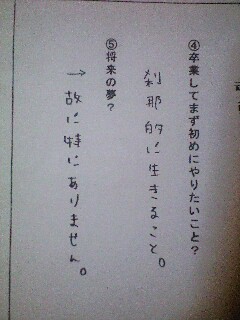 ④卒業してまず初めにやりたいこと？
刹那的に生きること。
⑤将来の夢？
→故に特にありません。